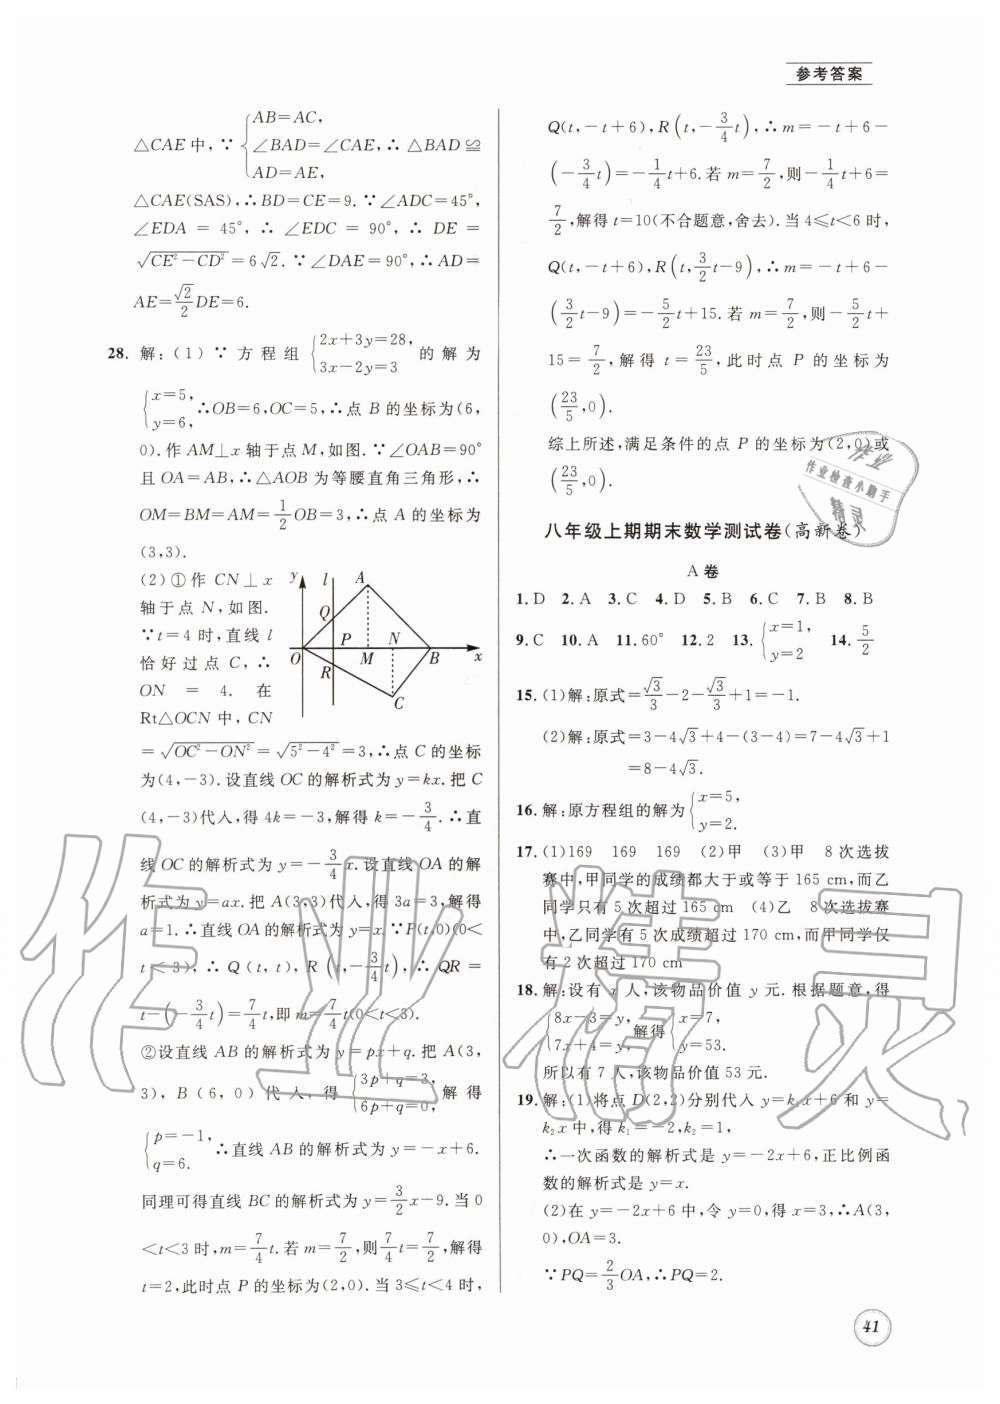 参考答案
AB=AC,
△CAE中,∵{∠BAD=∠CAE,∴△BAD≌
AD=AE,
△CAE(SAS),∴BD=CE=9.∵∠ADC=45°,
∠EDA=45°,∴∠EDC=90°,∴DE=
√(CE²-CD²)=6√2.∵∠DAE=90°,∴AD=
AE=(√2/2)DE=6.
28. 解:(1)∵方程组{2x+3y=28, 3x-2y=3 的解为
{x=5, y=6, ∴OB=6,OC=5,∴点B的坐标为(6,
0).作AM⊥x轴于点M,如图.∵∠OAB=90°
且OA=AB,∴△AOB为等腰直角三角形,∴
OM=BM=AM=1/2 OB=3,∴点A的坐标为
(3,3).
(2)①作CN⊥x
轴于点N,如图.
∵t=4时,直线l
恰好过点C,∴
ON=4.在
Rt△OCN中,CN
y l A
Q
P N
O M B x
R
C
=√(OC²-ON²)=√(5²-4²)=3,∴点C的坐标
为(4,-3).设直线OC的解析式为y=kx.把C
(4,-3)代入,得4k=-3,解得k=-3/4.∴直
线OC的解析式为y=-3/4 x.设直线OA的解
析式为y=ax.把A(3,3)代入,得3a=3,解得
a=1.∴直线OA的解析式为y=x.∵P(t,0)(0<
t<3),∴Q(t,t),R(t,-3/4 t),∴QR=
t-(-3/4 t)=7/4 t,即m=7/4 t(0<t<3).
②设直线AB的解析式为y=px+q.把A(3,
3),B(6,0)代入,得{3p+q=3, 6p+q=0, 解得
{p=-1, q=6. ∴直线AB的解析式为y=-x+6.
同理可得直线BC的解析式为y=3/2 x-9.当0
<t<3时,m=7/4 t.若m=7/2,则7/4 t=7/2,解得
t=2,此时点P的坐标为(2,0).当3≤t<4时,
Q(t,-t+6),R(t,-3/4 t),∴m=-t+6-
(-3/4 t)=-1/4 t+6.若m=7/2,则-1/4 t+6=
7/2,解得t=10(不合题意,舍去).当4≤t<6时,
Q(t,-t+6),R(t,3/2 t-9),∴m=-t+6-
(3/2 t-9)=-5/2 t+15.若m=7/2,则-5/2 t+
15=7/2,解得t=23/5,此时点P的坐标为
(23/5,0).
综上所述,满足条件的点P的坐标为(2,0)或
(23/5,0).
八年级上期期末数学测试卷(高新卷)
A卷
1. D 2. A 3. C 4. D 5. B 6. C 7. B 8. B
9. C 10. A 11. 60° 12. 2 13. {x=1, y=2 14. 5/2
15. (1)解:原式=√3/3-2-√3/3+1=-1.
(2)解:原式=3-4√3+4-(3-4)=7-4√3+1
=8-4√3.
16. 解:原方程组的解为{x=5, y=2.
17. (1)169 169 169 (2)甲 (3)甲 8次选拔
赛中,甲同学的成绩都大于或等于165 cm,而乙
同学只有5次超过165 cm (4)乙 8次选拔赛
中,乙同学有5次成绩超过170 cm,而甲同学仅
有2次超过170 cm
18. 解:设有x人,该物品价值y元.根据题意,得
{8x-3=y, 7x+4=y, 解得{x=7, y=53.
所以有7人,该物品价值53元.
19. 解:(1)将点D(2,2)分别代入y=k₁x+6和y=
k₂x中,得k₁=-2,k₂=1,
∴一次函数的解析式是y=-2x+6,正比例函
数的解析式是y=x.
(2)在y=-2x+6中,令y=0,得x=3,∴A(3,
0),OA=3.
∵PQ=2/3 OA,∴PQ=2.
41
作业检查小助手
精灵
作业精灵